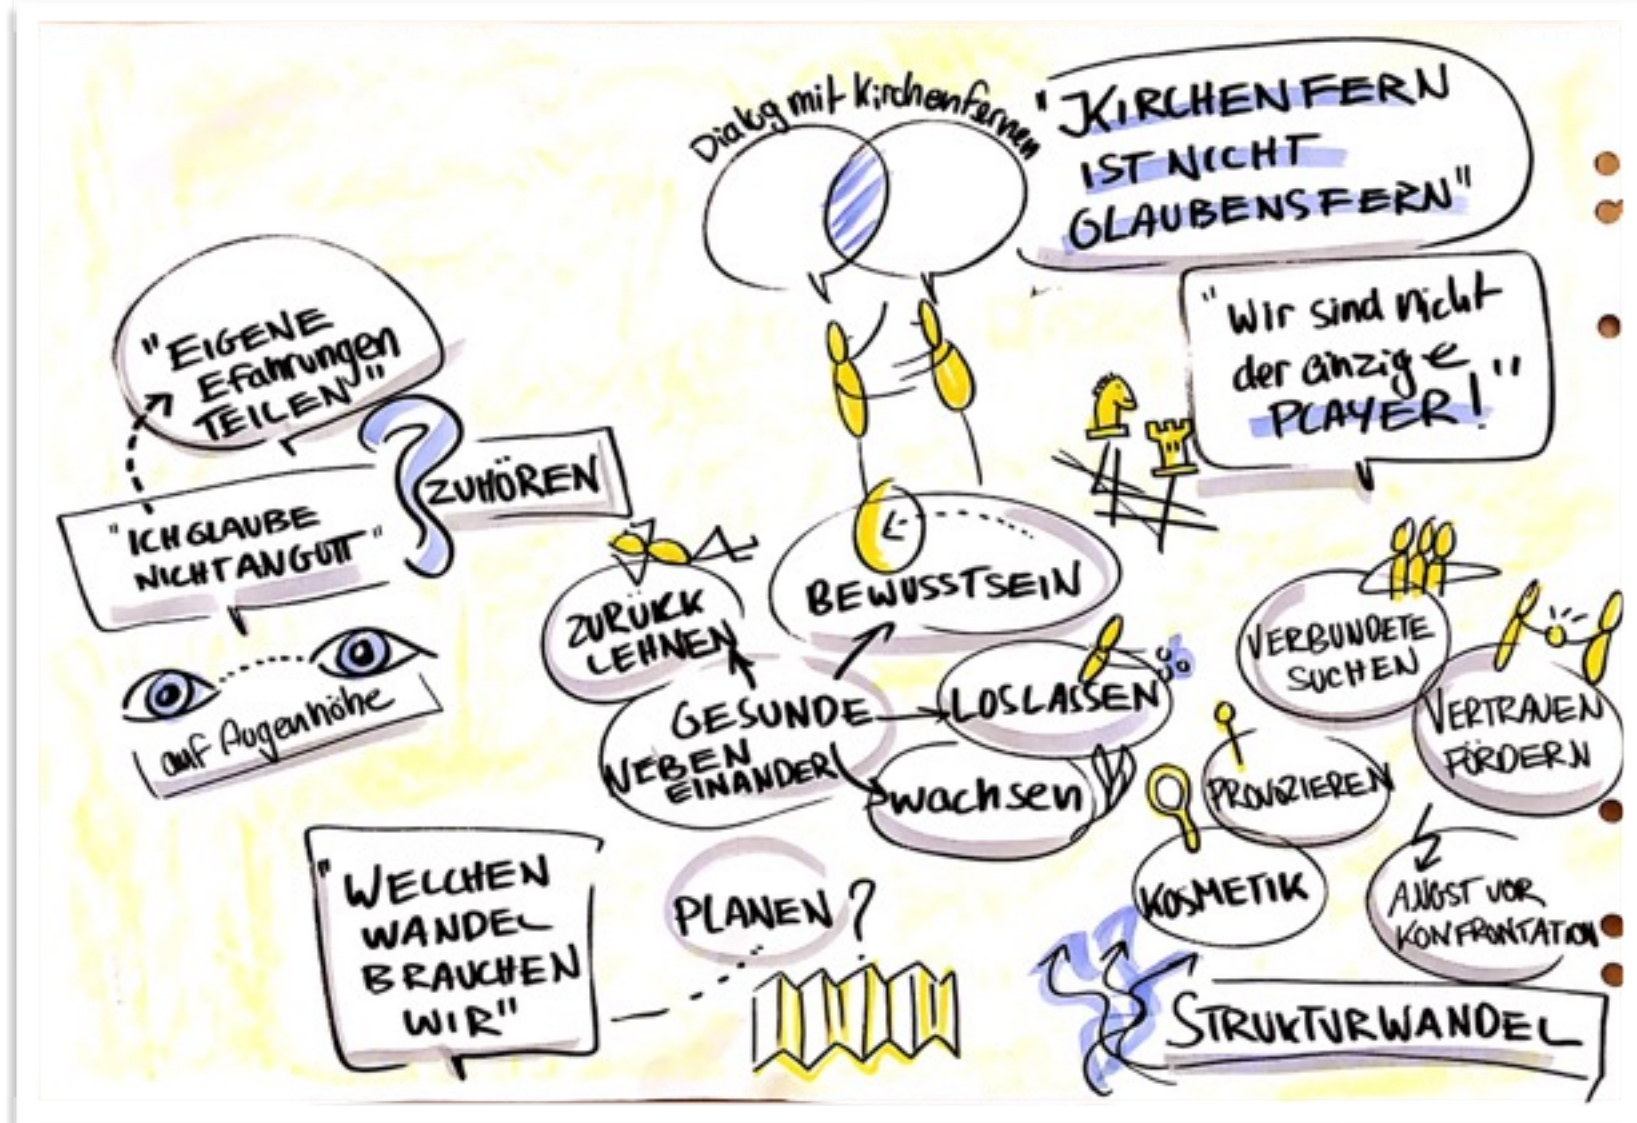 Dialog mit Kirchenfernen
"KIRCHENFERN
IST NICHT
GLAUBENSFERN"
"Wir sind nicht
der einzige
PLAYER!"
"EIGENE
Efahrungen
TEILEN"
ZUHÖREN
"ICH GLAUBE
NICHT AN GOTT"
auf Augenhöhe
BEWUSSTSEIN
ZURÜCK
LEHNEN
GESUNDE
NEBEN
EINANDER
LOSLASSEN
wachsen
VERBÜNDETE
SUCHEN
VERTRAUEN
FÖRDERN
PROVOZIEREN
KOSMETIK
ANGST VOR
KONFRONTATION
STRUKTURWANDEL
"WELCHEN
WANDEL
BRAUCHEN
WIR"
PLANEN?